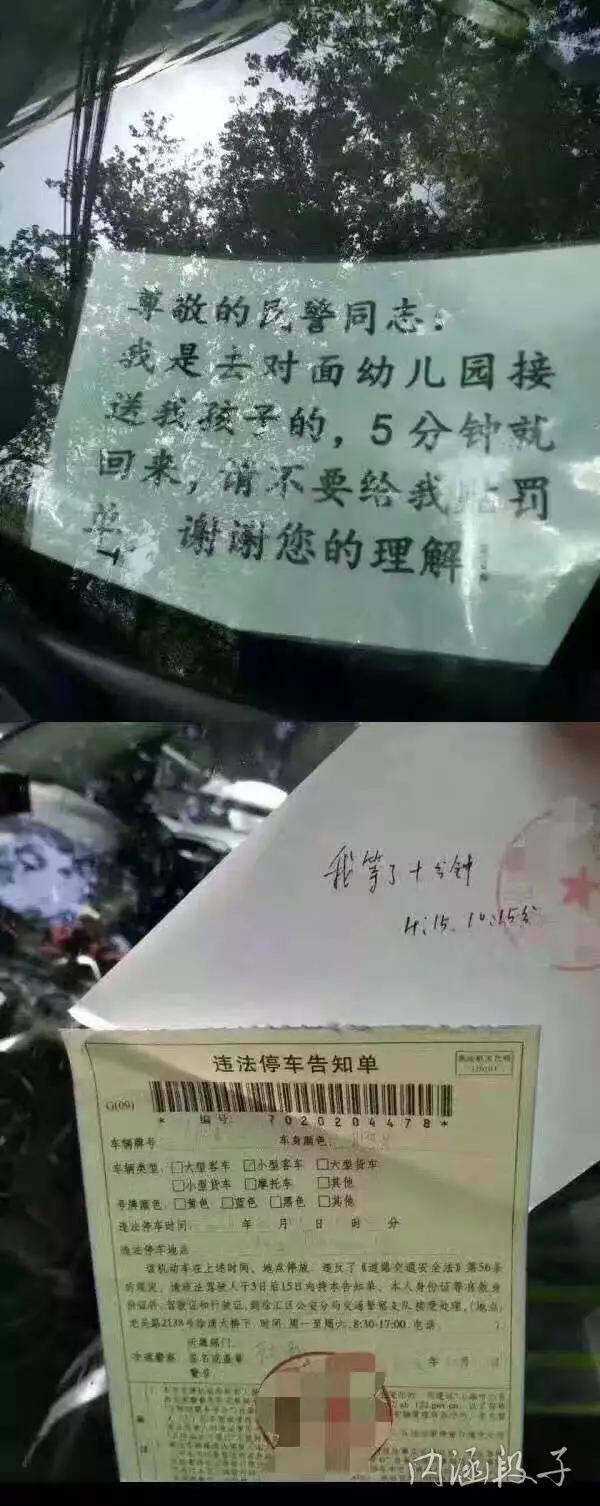 尊敬的民警同志:
我是去对面幼儿园接
送我孩子的，5分钟就
回来，请不要给我贴罚
单 谢谢您的理解!
我等了十分钟
违法停车告知单
G(09)
* 编号: 7020204478*
车辆牌号 车身颜色:
车辆类型: □大型客车 ☑小型客车 □大型货车
□小型货车 □摩托车 □其他
号牌颜色: □黄色 □蓝色 □黑色 □其他
违法停车时间: 年 月 日 时 分
违法停车地点
该机动车在上述时间、地点停放，违反了《道路交通安全法》第56条
的规定，请违法驾驶人于3日后15日内持本告知单、本人身份证等有效身
份证件、驾驶证和行驶证，到徐汇区公安分局交通警察支队接受处理。(地点:
老吴路2138号徐浦大桥下，时间: 周一至周六，8:30-17:00，电话: )
所属部门
交通警察 签名或盖章 年 月 日
警号
内涵段子